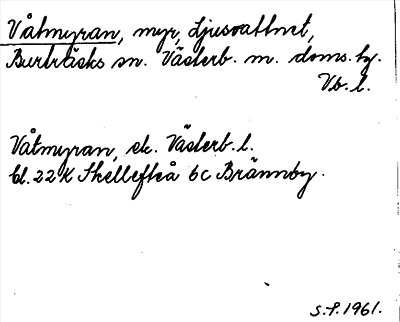 Våtmyran, myr, Ljusvattnet,
Burträsks sn. Västerb. m. doms. by.
Vb. l.
Våtmyran, ek. Västerb. l.
bl. 22K Skellefteå 6c Brännby.
S.P. 1961.